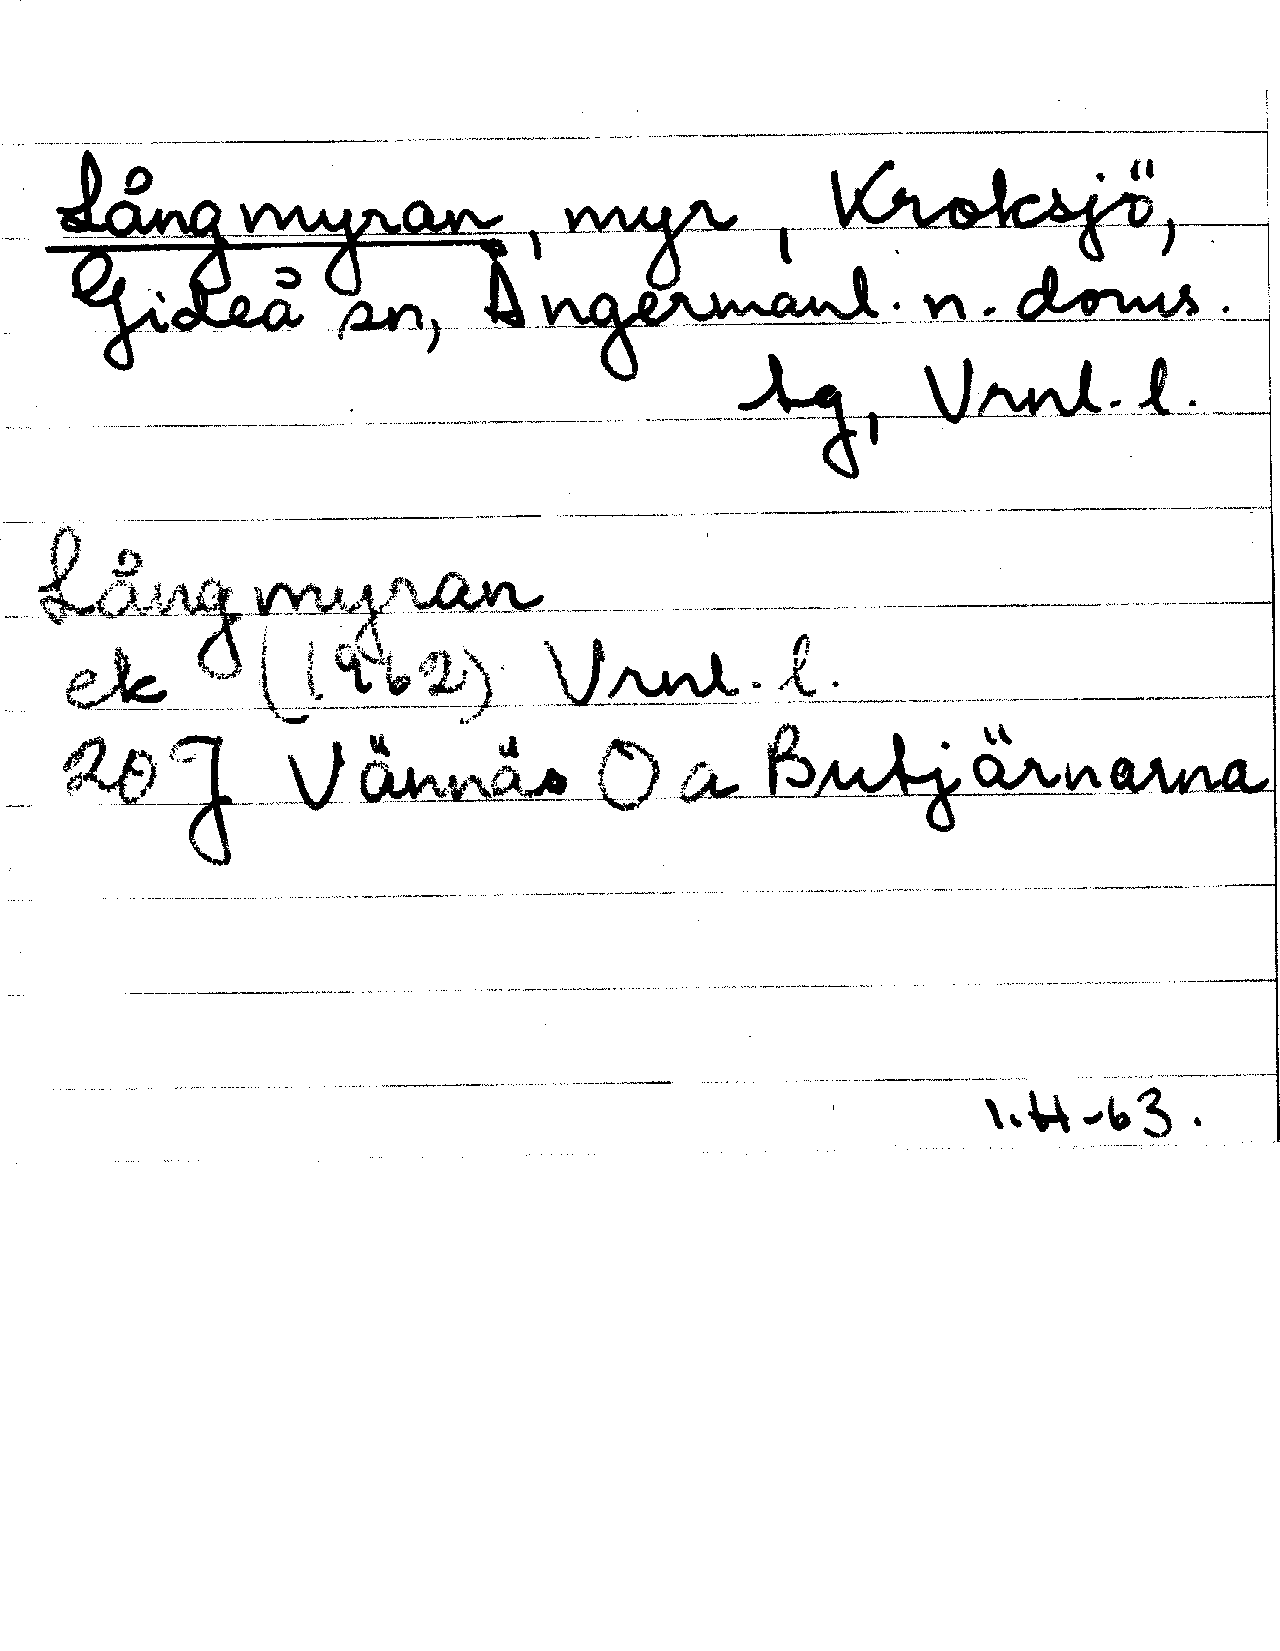 Långmyran, myr, Kroksjö,
Gideå sn, Ångermanl. n. doms.
tg, Vrnl. l.
Långmyran
ek (1962) Vrnl. l.
20J Vännäs O a Butjärnarna
1.H-63.